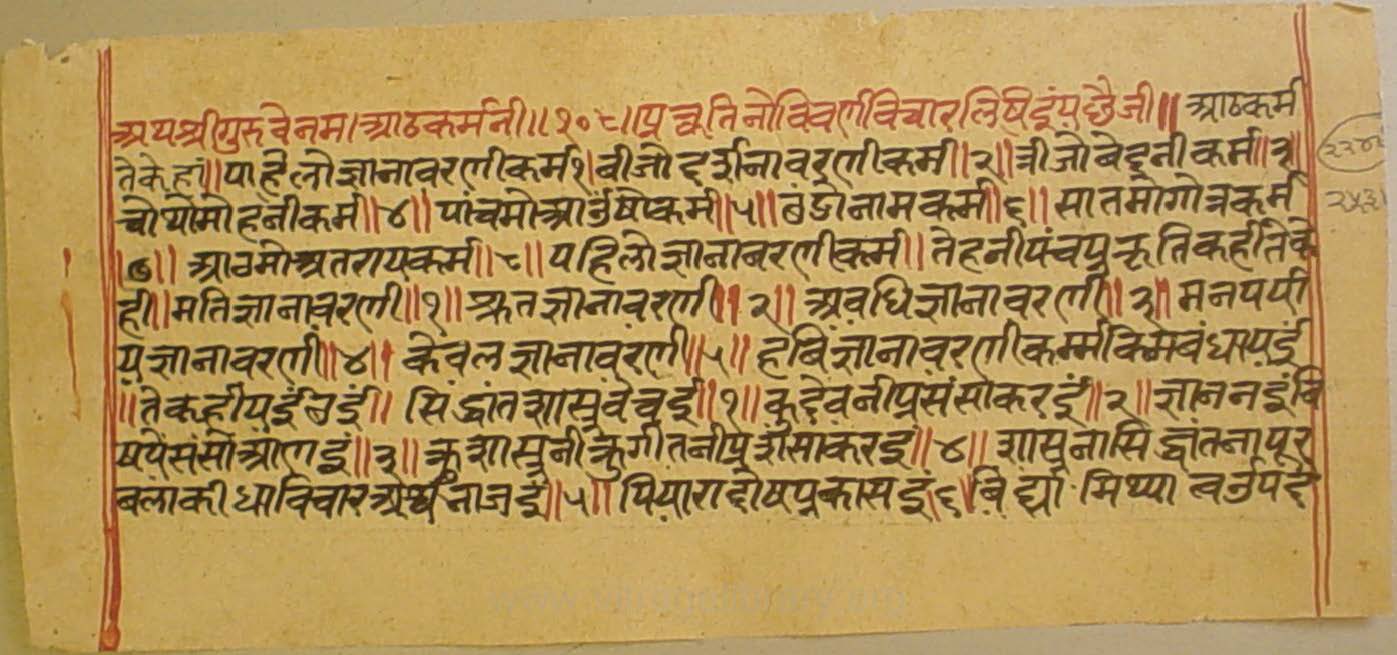 अथश्रीगुरुवेनम।आठकर्मनी॥१०८॥प्रकृतिनोविवर्णविचारलिषइंयछैजी॥ आठकर्म
तेकेहां॥पाहेलोज्ञानावरणीकर्म१।बीजोदर्शनावरणीकर्म॥२॥त्रीजोबेदनीकर्म॥३॥
चोथोमोहनीकर्म॥४॥ पांचमोआउषोकर्म॥५॥ छंठोनामकर्म॥६॥ सातमोगोत्रकर्म
॥७॥ आठमोअतरायकर्म॥८॥ पहिलोज्ञानाबरणीकर्म॥ तेहनीपंचप्रकृतिकहीतेके
ही॥मतिज्ञानावरणी॥१॥ श्रुतज्ञानावरणी॥२॥ अवधिज्ञानावरणी॥३॥मनपर्या
यज्ञानावरणी॥४॥ केवलज्ञानावरणी॥५॥ हबिंज्ञानावरणीकर्म्मकिमबंधायइं
॥तेकहीयइंछइं॥ सिद्धांतशास्त्रवेचइं॥१॥कुदेवनीप्रसंसाकरइं॥२॥ज्ञाननइंवि
षयेसंसोआणइं॥३॥कुशास्त्रनीकुगीतनीप्रशंसाकरइ॥४॥ शास्त्रनासिद्धांतनापूर
बलाकीधाविचारअर्थनाजइं॥५॥ पियारादोषप्रकासइं।६। मिथ्या
२२४
www.vitragelibrary.org